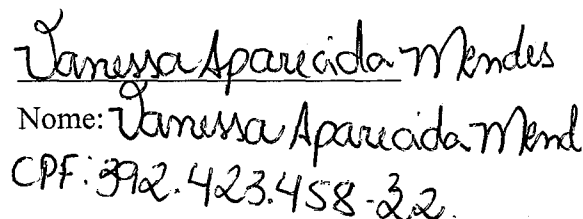 Vanessa Aparecida Mendes
Nome: Vanessa Aparecida Mend
CPF: 392.423.458-32.